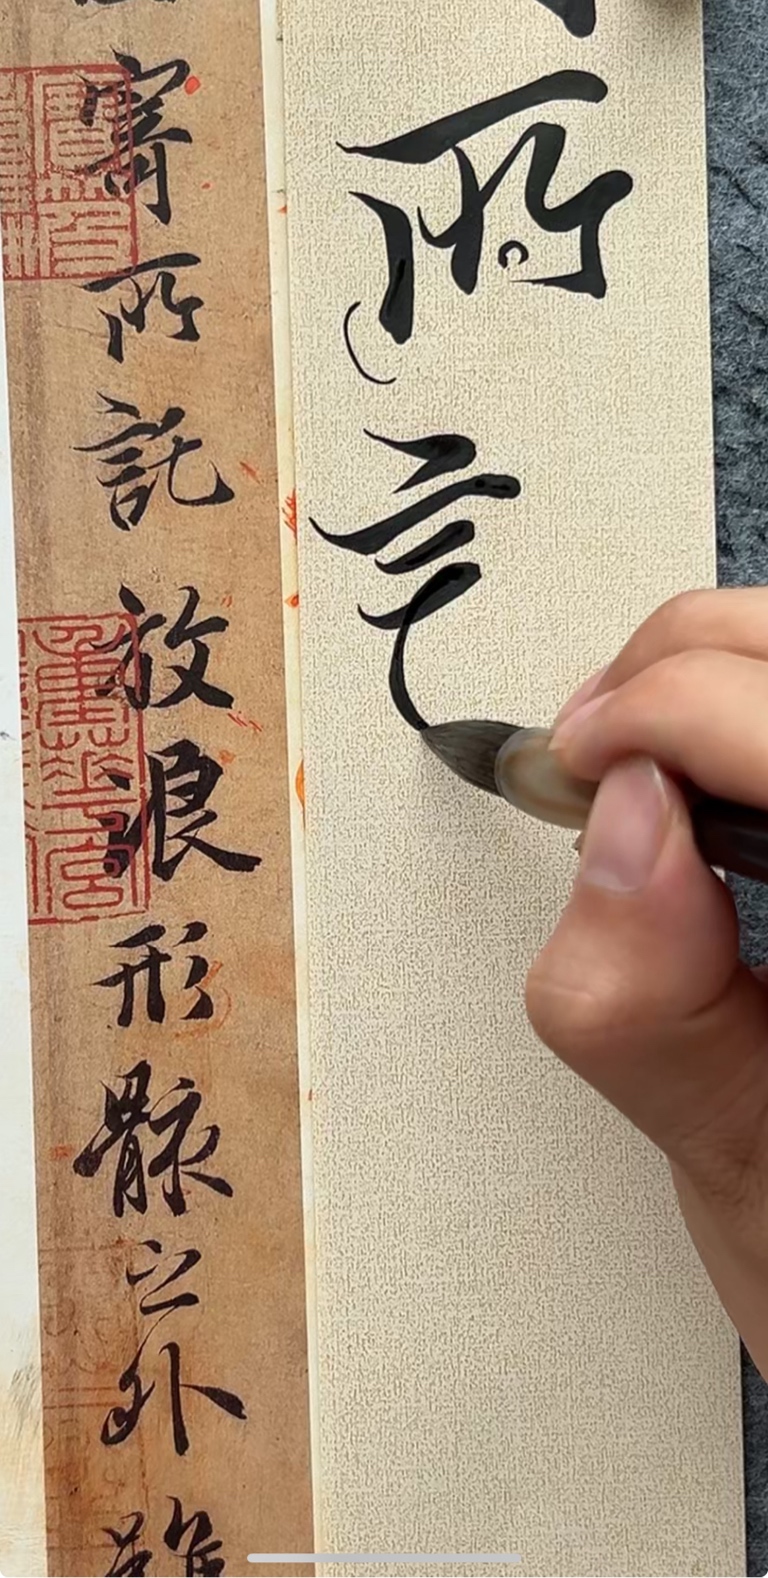 所
寄所託放浪形骸之外雖